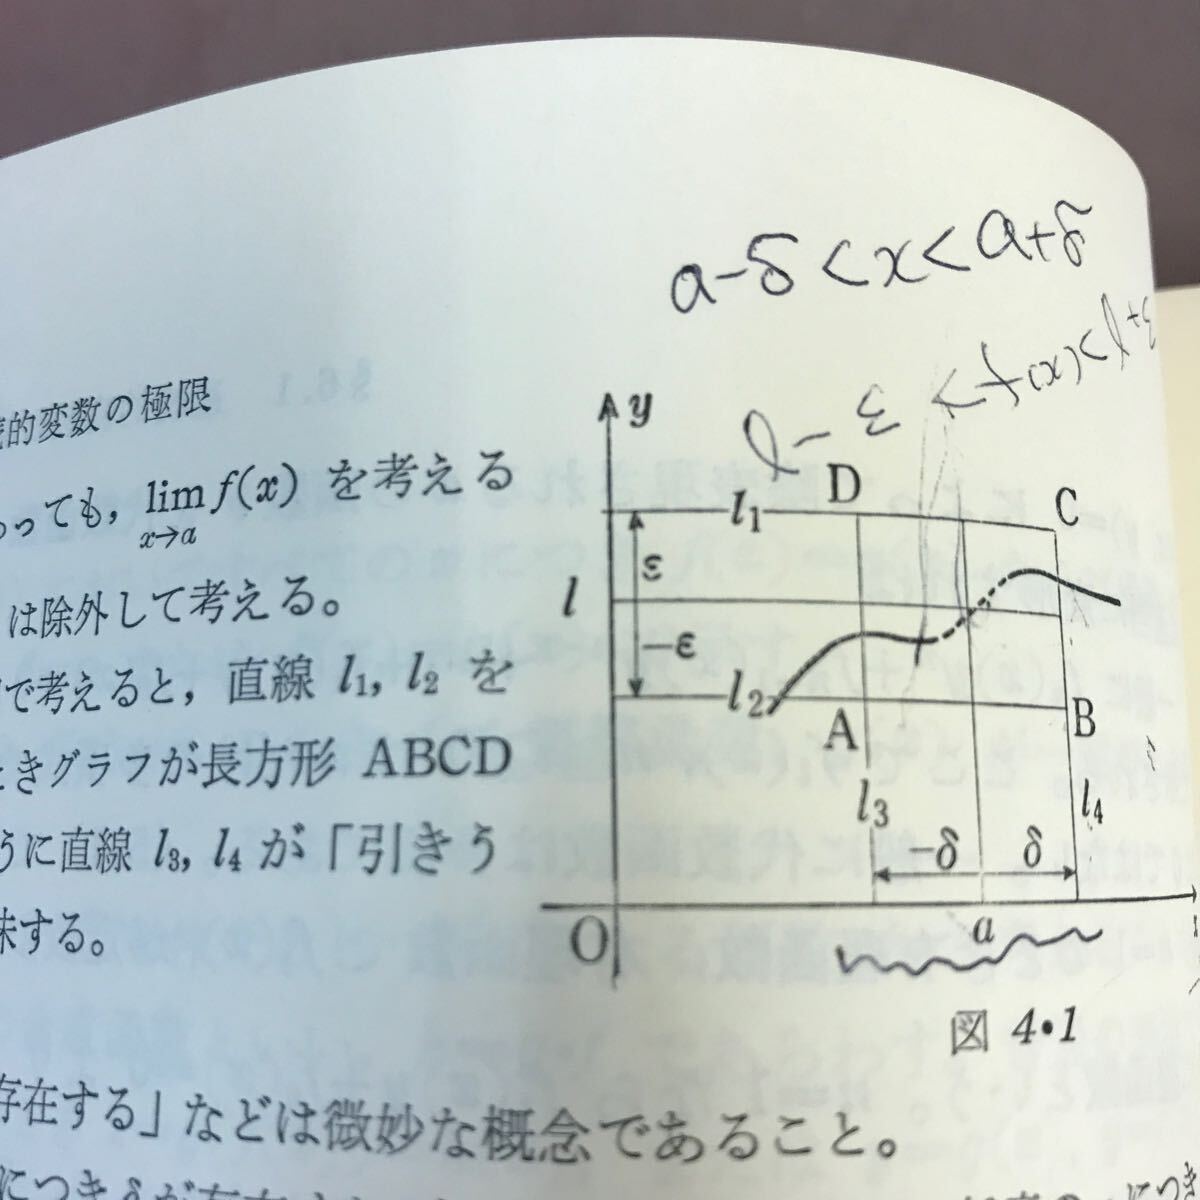 a-δ<x<a+δ
l-ε<f(x)<l+ε
的変数の極限
っても, lim f(x) を考える
x→a
は除外して考える。
で考えると, 直線 l₁, l₂ を
ときグラフが長方形 ABCD
うに直線 l₃, l₄ が「引きう
味する。
y
l₁ D C
ε
l
-ε
l₂ A B
l₃ l₄
-δ δ
O a
図 4・1
存在する」などは微妙な概念であること。
につきδが存在